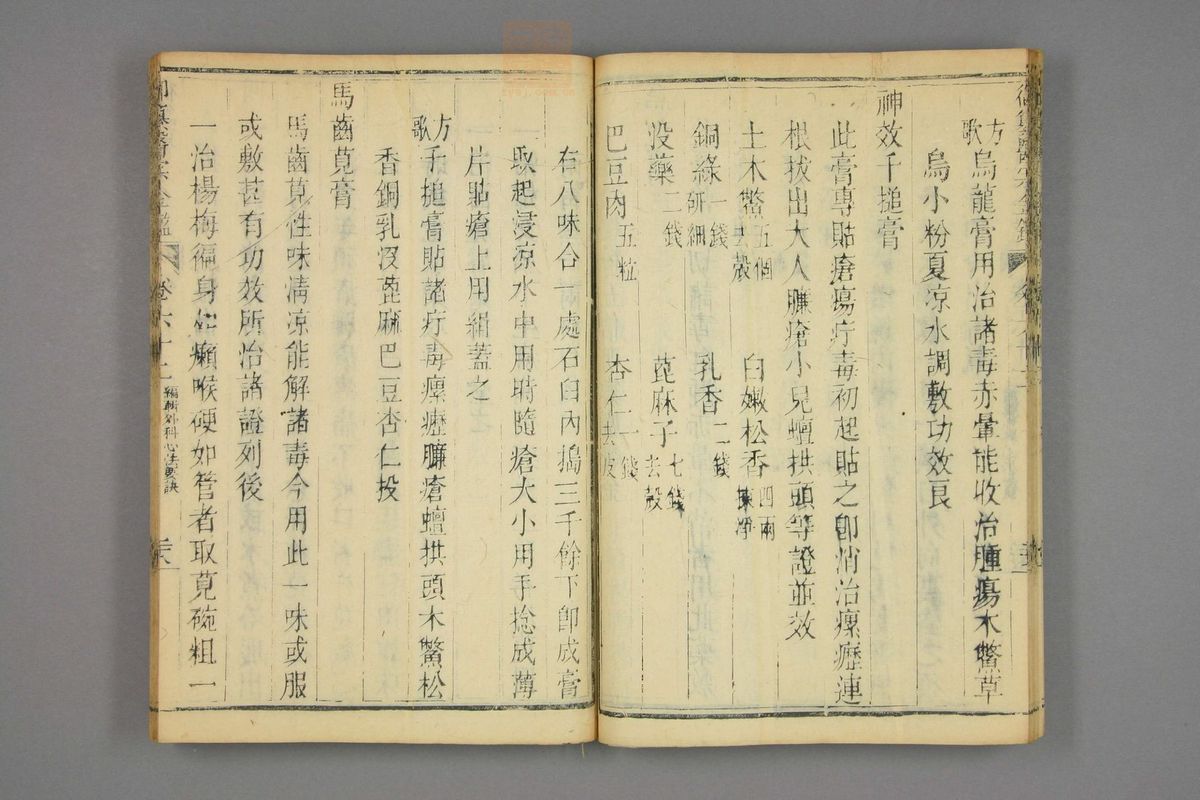 方歌 烏龍膏用治諸毒赤暈能收治腫瘍木鱉草
烏小粉夏涼水調敷功效良
神效千搥膏
此膏專貼瘡瘍疔毒初起貼之卽消治瘰癧連
根拔出大人臁瘡小兒蟺拱頭等證並效
土木鱉五個去殼 白嫩松香四兩揀淨
銅綠一錢研細 乳香二錢
沒藥二錢 蓖麻子七錢去殼
巴豆肉五粒 杏仁一錢去皮
右八味合一處石臼內搗三千餘下卽成膏
取起浸涼水中用時隨瘡大小用手捻成薄
片貼瘡上用絹蓋之
方歌 千搥膏貼諸疔毒瘰癧臁瘡蟺拱頭木鱉松
香銅乳沒蓖麻巴豆杏仁投
馬齒莧膏
馬齒莧性味清凉能解諸毒今用此一味或服
或敷甚有功效所治諸證列後
一治楊梅徧身如癩喉硬如管者取莧碗粗一
御纂醫宗金鑑 卷六十二 編輯外科心法要訣